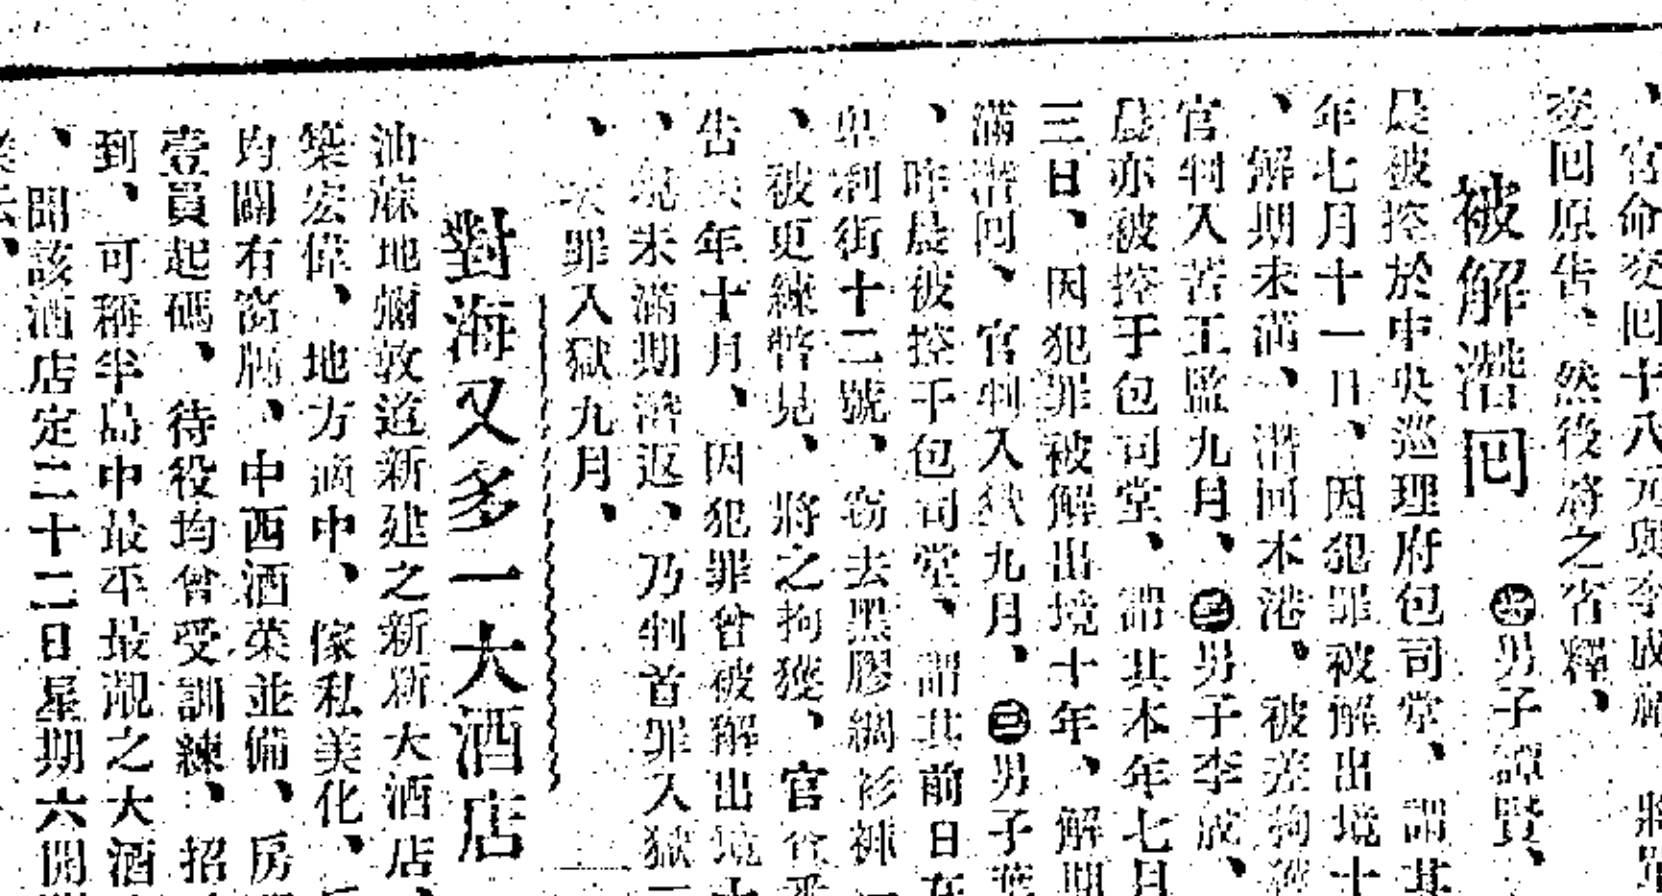 、官命交囘十八元與李成
交囘原告、然後將之省釋、
被解潛囘
男子譚賢、
晨被控於中央巡理府包司堂、謂其
年七月十一日、因犯罪被解出境十
、解期未滿、潛囘本港。被差拘
官判入苦工監九月、男子李成、
晨亦被控于包司堂、謂其本年七月
三日、因犯罪被解出境十年、解期
滿潛囘、官判入獄九月、㊁男子
、昨晨被控于包司堂、謂其前日在
卑利街十二號、窃去黑膠綢衫褲一
、被更練瞥見、將之拘獲、官
告 年十月、因犯罪曾被解出境
、現未滿期潛返、乃判首罪入獄
、次罪入獄九月、
對海又多一大酒店
油蔴地彌敦道新建之新新大酒店、
築宏偉、地方適中、傢私美化、
均闢有窗牖、中西酒菜並備、房
壹員起碼、待役均曾受訓練、招
到、可稱半島中最平最靚之大酒
、聞該酒店定二十二日星期六開
業云、